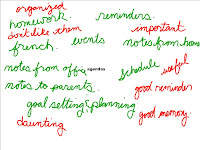 organized
homework. reminders.
don't like them important
french. events notes from home
notes from office agendas schedule useful
notes to parents. good reminder
goal setting & planning
daunting good memory.